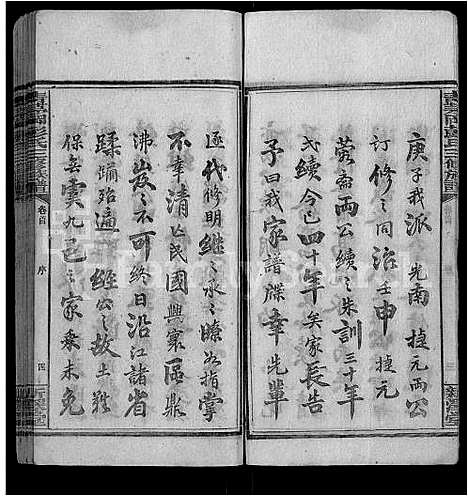 庚子我派 先南 捷元兩公
訂修之同治壬申 捷元
蒙齋兩公續之朱訓三十年
式續今已四十年矣家長告
予曰我家譜牒幸先輩
逐代修明繼之承之瞭如指掌
不幸清亡民國興寰區鼎
沸岌岌不可終日沿江諸省
蹂躪殆遍 維公之故土難
保無虞凡已之家乘未免
彭氏三修族譜
卷首
序
四